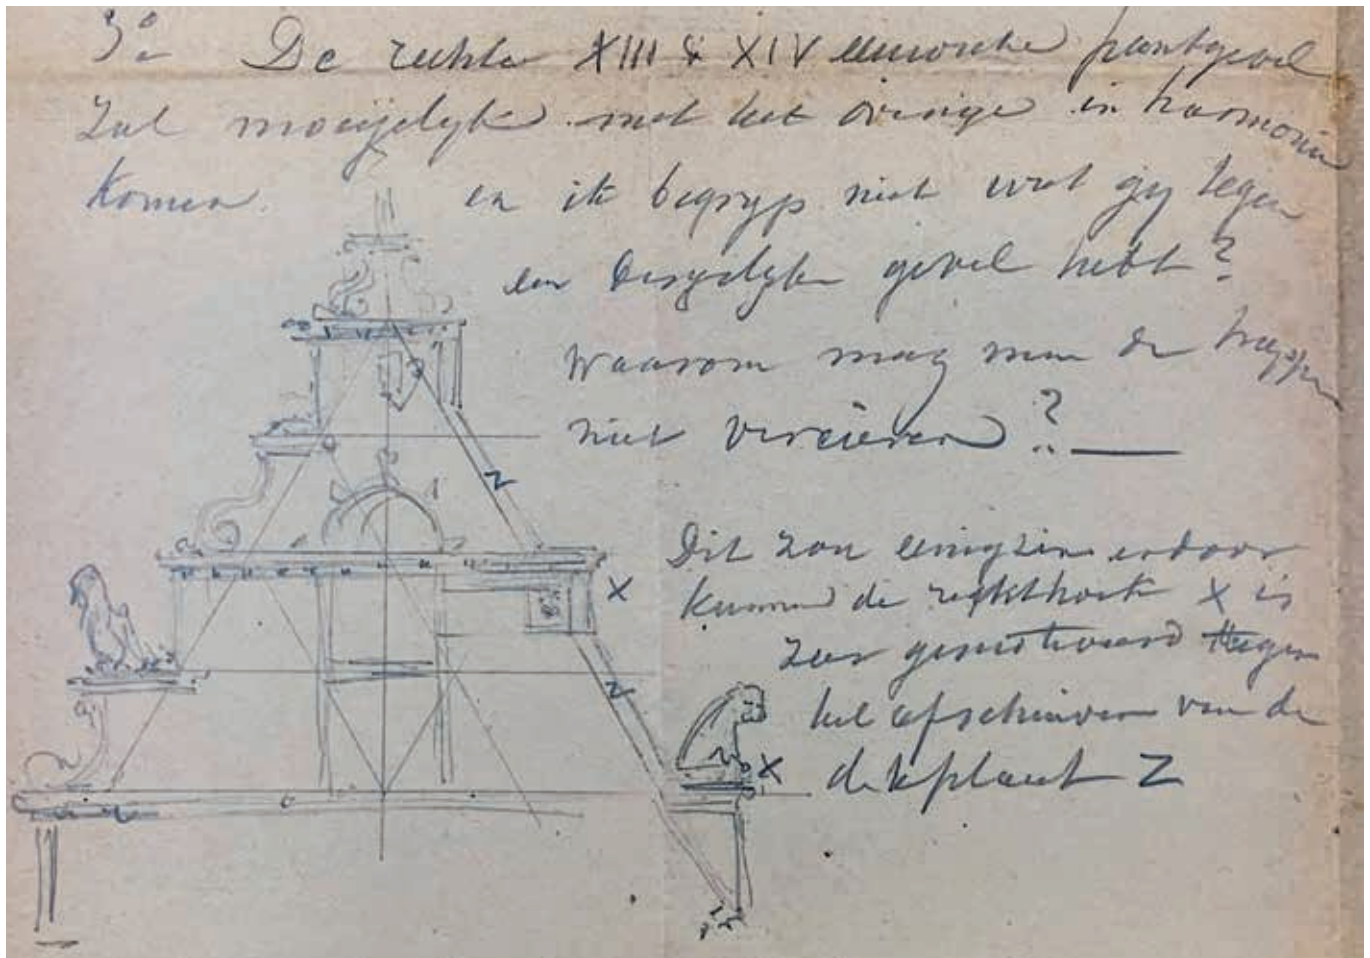 3º De rechte XIII & XIV eeuwsche puntgevel
zal moeijelyk met het overige in harmonie
komen. en ik begryp niet wat gy tegen
een dergelyken gevel hebt?
Waarom mag men de trappen
niet versieren?
Dit zou eenigzins
kunnen de rechthoek X is
zeer gemotiveerd tegen
het afschuiven van de
dekplaat Z
Z
X
Z
X